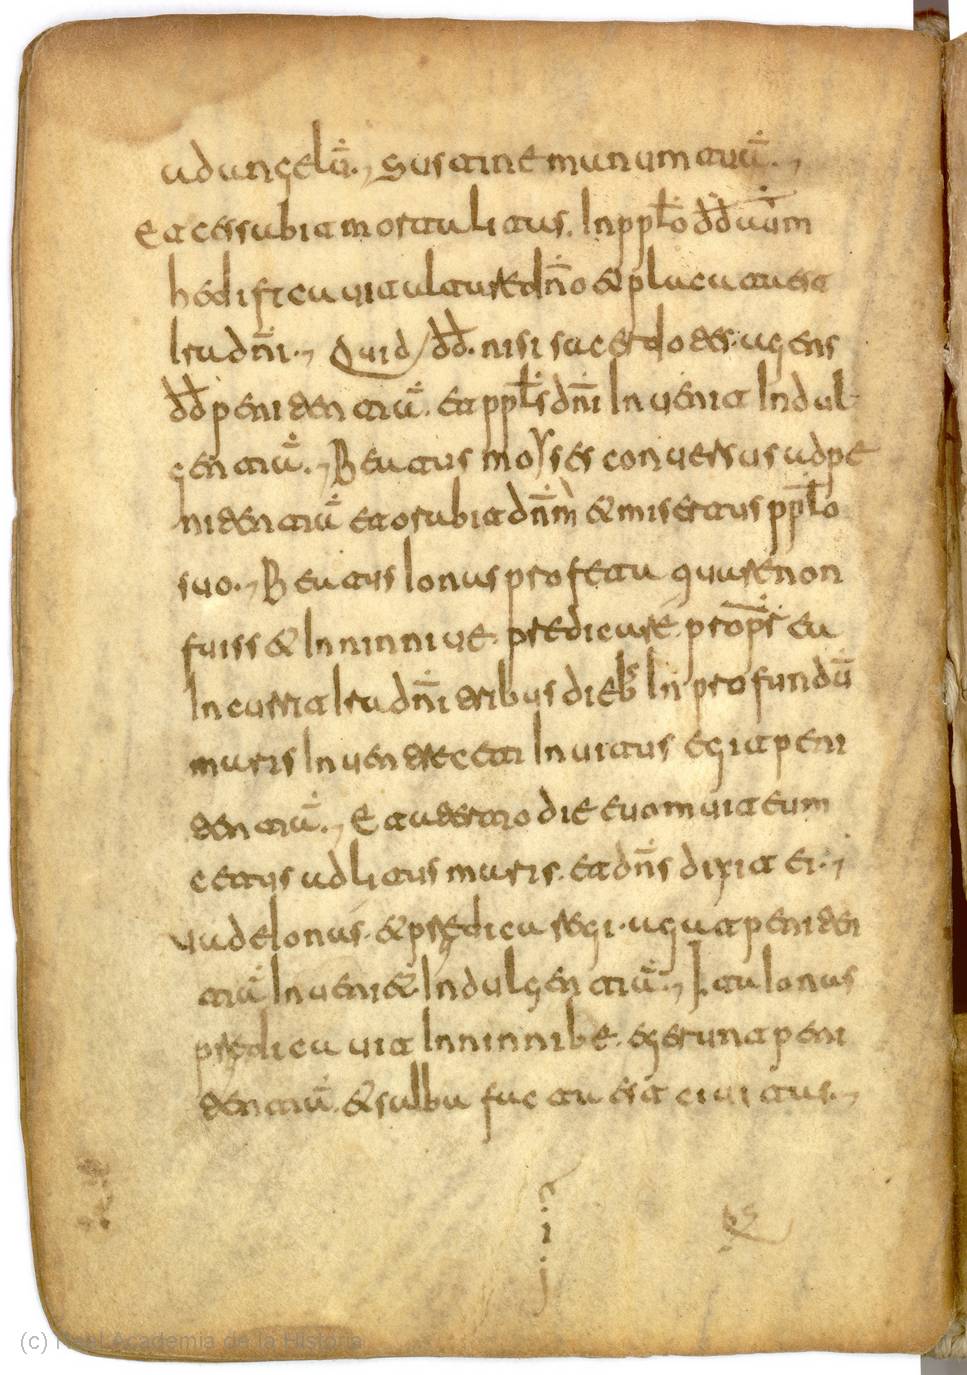 ad angelū. Sustine manum tuā.
Et cessabit mortalitas. In pplo dd uum
hedificauit altare dn̄o & placata est
Ira dn̄i. Quid dd. nisi sacerdotes. agens
dd penitentiā. et ppls dn̄i Inuenit Indul
gentiā. Beatus moyses conuersus ad pe
nitentiā et orabit dn̄m & misertus pplo
suo. Beatus Ionas profeta quare non
fuiss& In ninniue. predicare. propr̄ ea
Incurrit Ira dn̄i tribus dieb̄ In profundū
maris In uentre ceti Inuitus egit peni
tentiā. Et a tertio die euomuit eum
cetus ad litus maris. et dn̄s dixit ei.
uade Ionas. & predica regi. agat peniten
tiā Inueni& Indulgentiā. Ita Ionas
predicauit In ninnibe. egerunt peni
tentiā. & salba facta est ciuitas.
(c) Real Academia de la Historia